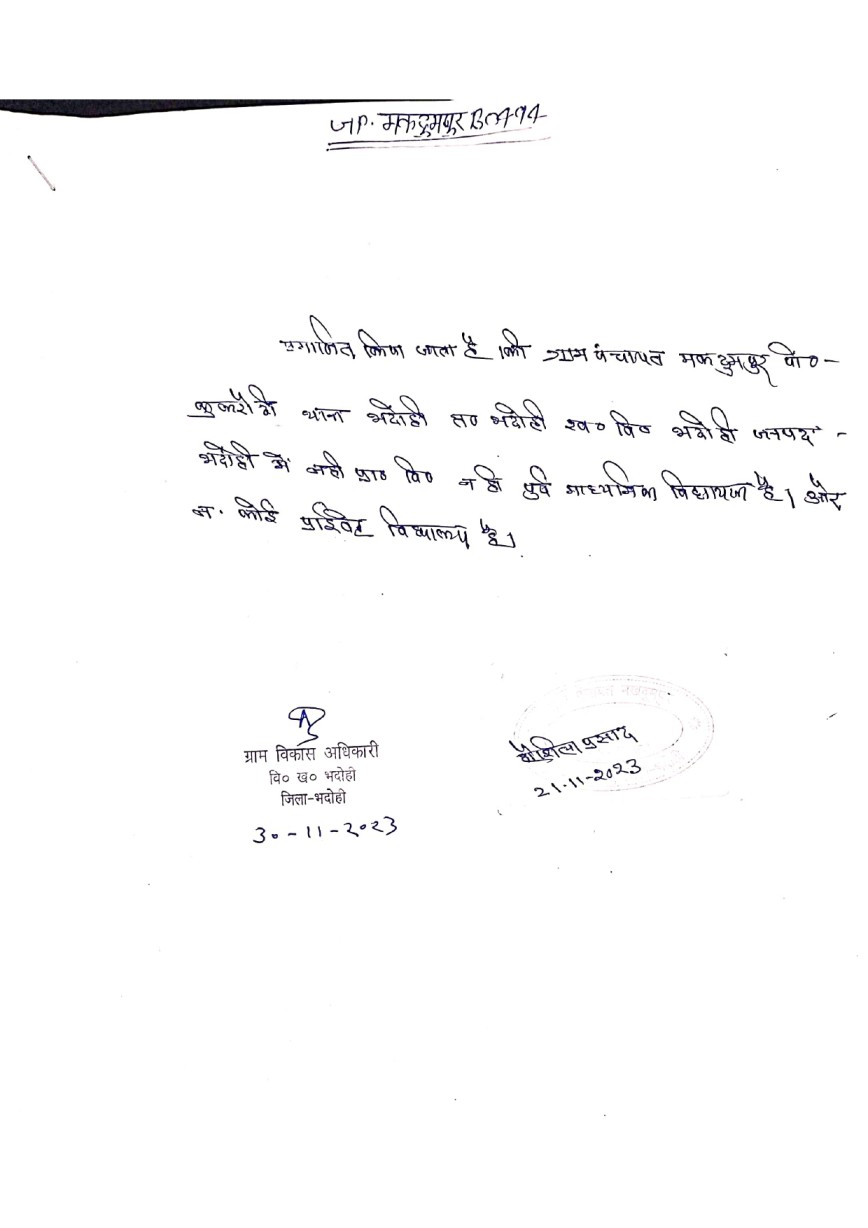 मकदुमपुर
प्रमाणित किया जाता है कि ग्राम पंचायत मकदुमपुर पो०-
थाना भदोही त० भदोही ख० वि० भदोही जनपद -
भदोही में नही प्रा० वि० न ही पुर्व माध्यमिक विद्यायल है। और
न. कोई प्राईवेट विद्यालय है।
ग्राम विकास अधिकारी
वि० ख० भदोही
जिला-भदोही
30-11-2023
प्रसाद
21-11-2023